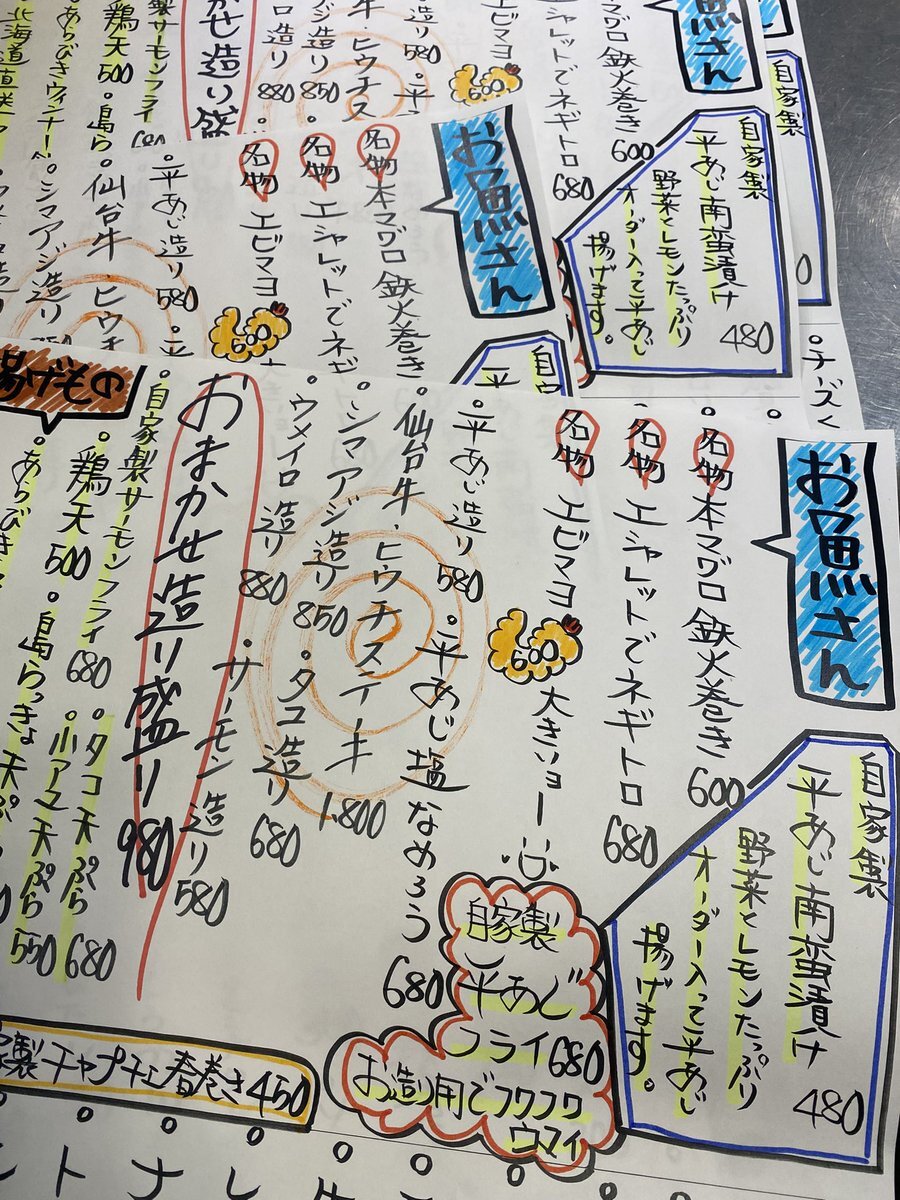 お魚さん
名物 本マグロ鉄火巻き 600
名物 エシャレットでネギトロ 680
名物 エビマヨ 600 大きいョー
平あじ造り 580
平あじ塩なめろう 680
仙台牛・ヒウチステーキ 1,800
シマアジ造り 850
タコ造り 680
ウメイロ造り 880
サーモン造り 580
おまかせ造り盛り 980
自家製
平あじ南蛮漬け 480
野菜とレモンたっぷり
オーダー入って平あじ
揚げます。
自家製
平あじ
フライ 680
お造り用でフワフワ
ウマイ
揚げもの
自家製サーモンフライ 680
タコ天ぷら 680
鶏天 500
小アユ天ぷら 550
あらびき
島らっきょ天ぷ
製チャプチェ春巻き 450
お魚さん
名物 本マグロ鉄火巻き
名物 エシャレットでネギ
名物 エビマヨ 600
平あじ造り 580
仙台牛 ヒウチ
シマアジ造り
お魚さん
マグロ鉄火巻き 600
シャレットでネギトロ 680
エビマヨ 600
造り 580
牛・ヒウチス
アジ造り 850
ロ造り 880
かせ造り盛
製サーモンフライ 680
鶏天 500
島ら
あらびきウィンナー
北海道直送
自家製
平あじ南蛮漬け 480
野菜とレモンたっぷり
オーダー入って平あじ
揚げます。
自家製
チーズく